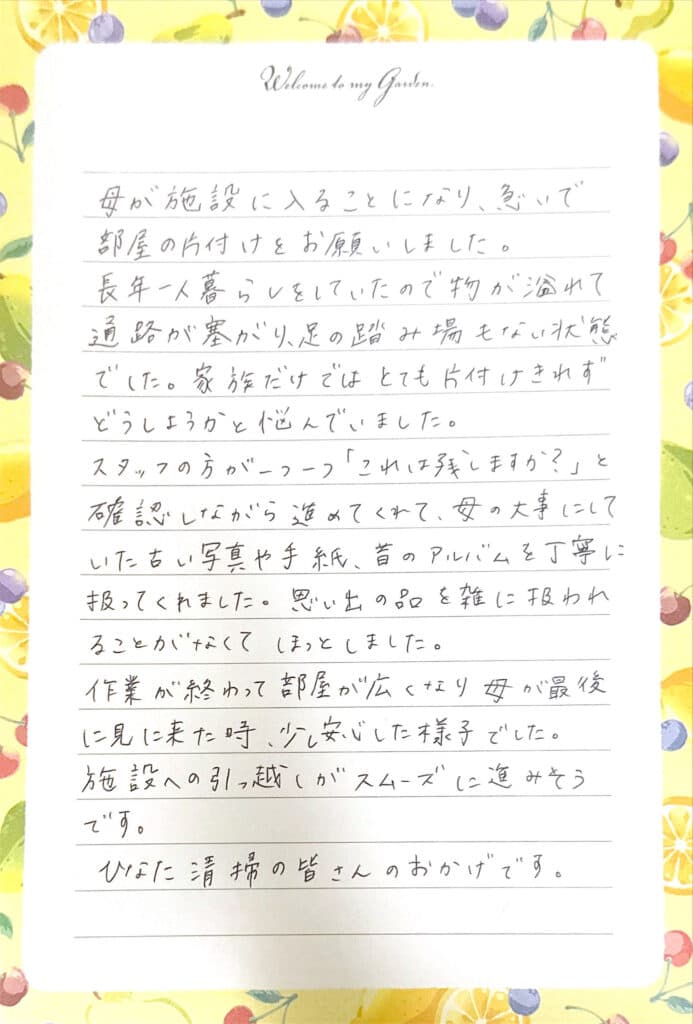 Welcome to my Garden.
母が施設に入ることになり、急いで
部屋の片付けをお願いしました。
長年一人暮らしをしていたので物が溢れて
通路が塞がり、足の踏み場もない状態
でした。家族だけではとても片付けきれず
どうしようかと悩んでいました。
スタッフの方が一つ一つ「これは残しますか?」と
確認しながら進めてくれて、母の大事にして
いた古い写真や手紙、昔のアルバムを丁寧に
扱ってくれました。思い出の品を雑に扱われ
ることがなくてほっとしました。
作業が終わって部屋が広くなり母が最後
に見に来た時、少し安心した様子でした。
施設への引っ越しがスムーズに進みそう
です。
ひなた清掃の皆さんのおかげです。